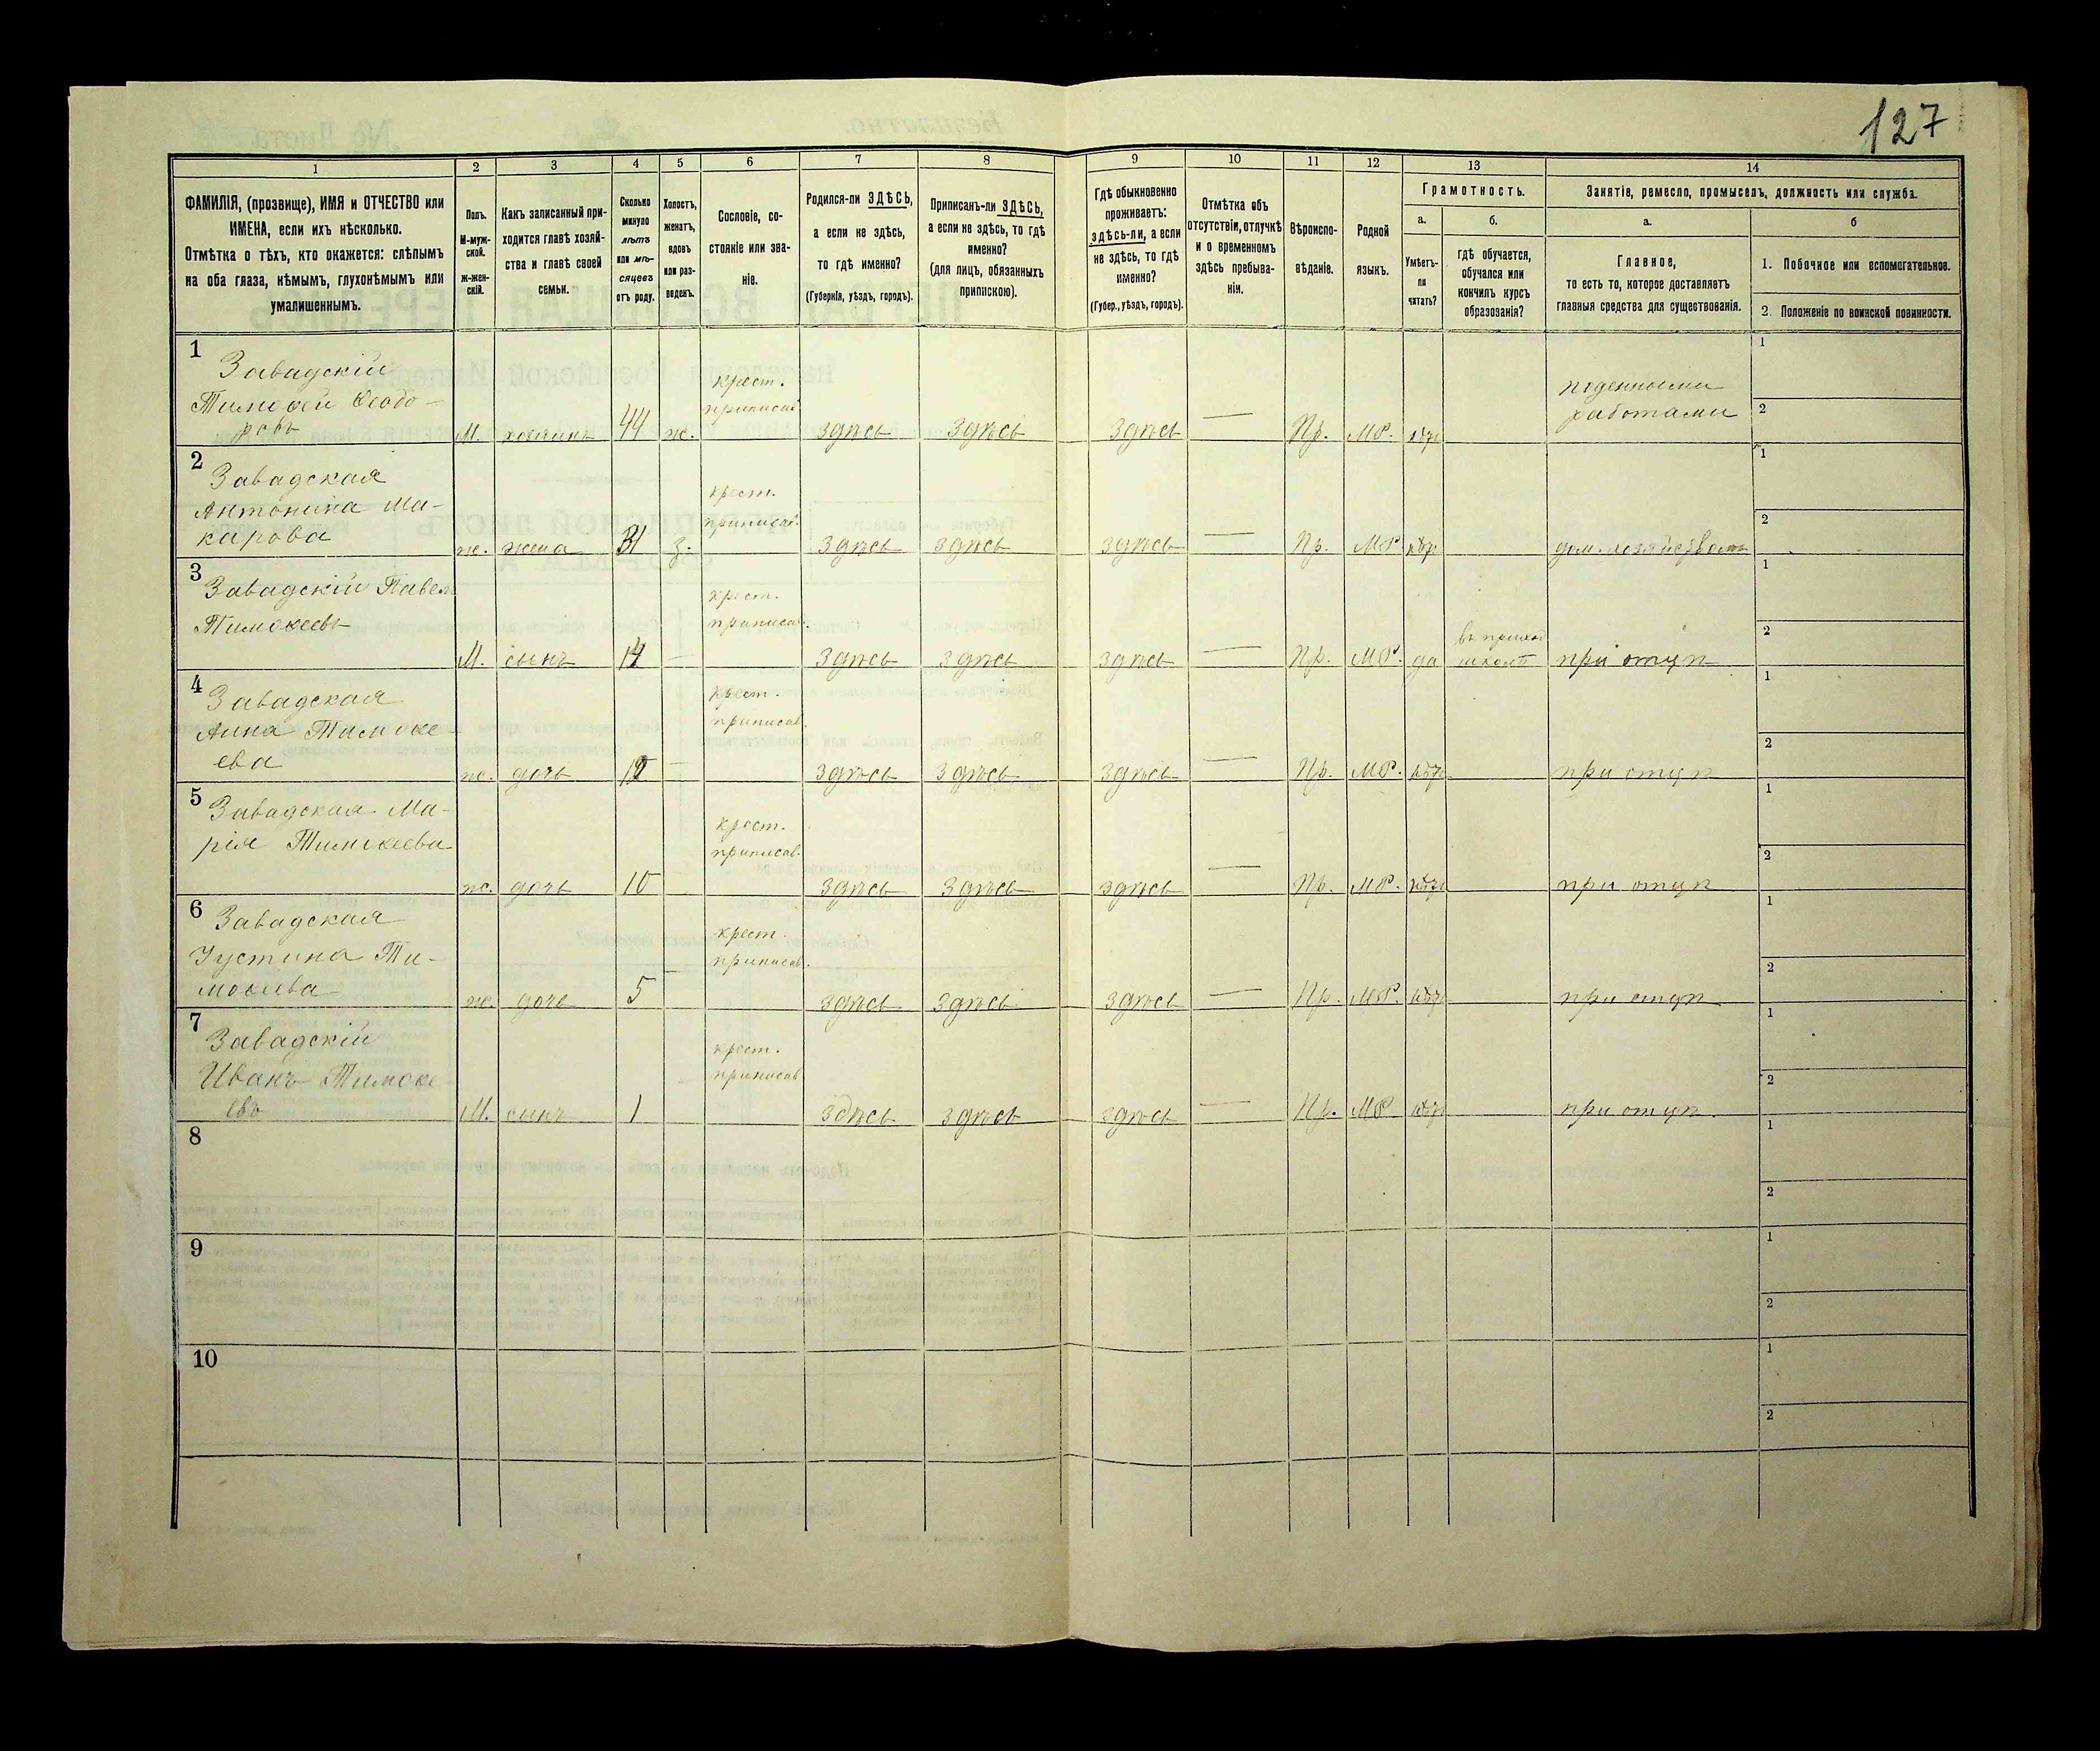 127
1 2 3 4 5 6 7 8 9 10 11 12 13 14
ФАМИЛІЯ, (прозвище), ИМЯ и ОТЧЕСТВО или
ИМЕНА, если ихъ нѣсколько.
Отмѣтка о тѣхъ, кто окажется: слѣпымъ
на оба глаза, нѣмымъ, глухонѣмымъ или
умалишеннымъ.
Полъ.
М-муж-
ской.
ж-жен-
скій.
Какъ записанный при-
ходится главѣ хозяй-
ства и главѣ своей
семьи.
Сколько
минуло
лѣтъ
или мѣ-
сяцевъ
отъ роду.
Холостъ,
женатъ,
вдовъ
или раз-
веденъ.
Сословіе, со-
стояніе или зва-
ніе.
Родился-ли ЗДѢСЬ,
а если не здѣсь,
то гдѣ именно?
(Губернія, уѣздъ, городъ).
Приписанъ-ли ЗДѢСЬ,
а если не здѣсь, то гдѣ
именно?
(для лицъ, обязанныхъ
припискою).
Гдѣ обыкновенно
проживаетъ:
здѣсь-ли, а если
не здѣсь, то гдѣ
именно?
(Губер., уѣздъ, городъ).
Отмѣтка объ
отсутствіи, отлучкѣ
и о временномъ
здѣсь пребыва-
ніи.
Вѣроиспо-
вѣданіе.
Родной
языкъ.
Грамотность.
а.
Умѣетъ-
ли
читать?
б.
гдѣ обучается,
обучался или
кончилъ курсъ
образованія?
Занятіе, ремесло, промыселъ, должность или служба.
а.
Главное,
то есть то, которое доставляетъ
главныя средства для существованія.
б
1. Побочное или вспомогательное.
2. Положеніе по воинской повинности.
1
Завадскій
Тимофей Ѳеодо-
ровъ
М. хозяинъ 44 ж.
крест.
приписав.
здѣсь здѣсь здѣсь — Пр. МР. нѣтъ
поденными
работами
1
2
2
Завадская
Антонина Ма-
карова
ж. жена 31 з.
крест.
приписав.
здѣсь здѣсь здѣсь — Пр. МР. нѣтъ
дом. хозяйствомъ
1
2
3
Завадскій Павелъ
Тимоѳеевъ
М. сынъ 14 —
крест.
приписав.
здѣсь здѣсь здѣсь — Пр. МР. да
въ приход
школѣ
при отцѣ
1
2
4
Завадская
Анна Тимоѳе
ева
ж. дочь 12 —
крест.
приписав.
здѣсь здѣсь здѣсь — Пр. МР. нѣтъ
при отцѣ
1
2
5
Завадская Ма-
рія Тимоѳеева
ж. дочь 10
крест.
приписав.
здѣсь здѣсь здѣсь — Пр. МР. нѣтъ
при отцѣ
1
2
6
Завадская
Іустина Ти-
моѳеева
ж. дочь 5 —
крест.
приписав.
здѣсь здѣсь здѣсь — Пр. МР. нѣтъ
при отцѣ
1
2
7
Завадскій
Иванъ Тимоѳе
евъ
М. сынъ 1
крест.
приписав.
здѣсь здѣсь здѣсь — Пр. МР. нѣтъ
при отцѣ.
1
2
8
1
2
9
1
2
10
1
2